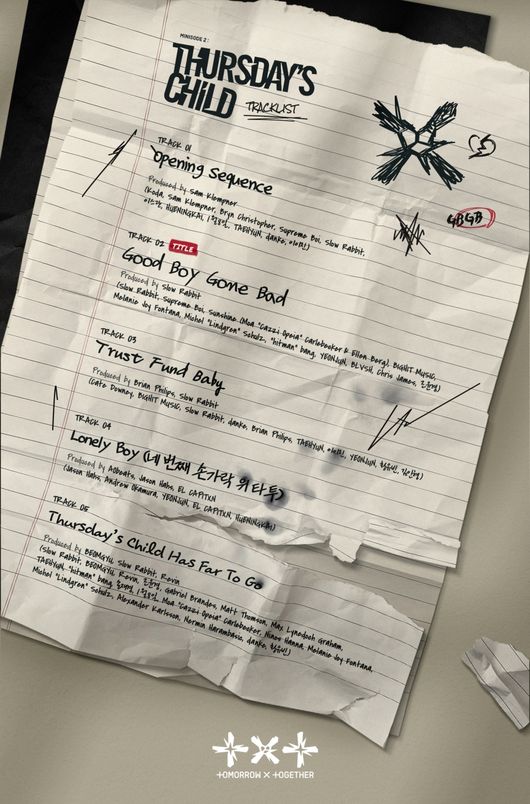 MINISODE 2 :
THURSDAY'S
CHILD
TRACKLIST
GBGB
TRACK 01
Opening Sequence
Produced by Sam Klempner
(Koda, Sam Klempner, Bryn Christopher, Supreme Boi, Slow Rabbit,
이스란, HUENINGKAI, 1월8일, TAEHYUN, danke, 이이진)
TRACK 02 TITLE
Good Boy Gone Bad
Produced by Slow Rabbit
(Slow Rabbit, Supreme Boi, Sunshine (Moa "Cazzi Opeia" Carlebecker & Ellen Berg), BIGHIT MUSIC,
Melanie Joy Fontana, Michel "Lindgren" Schulz, "hitman" bang, YEONJUN, BLVSH, Chris James,
TRACK 03
Trust Fund Baby
Produced by Brian Philips, Slow Rabbit
(Cate Downey, BIGHIT MUSIC, Slow Rabbit, danke, Brian Philips, TAEHYUN, YEONJUN, 황유빈,
TRACK 04
Lonely Boy (네 번째 손가락 위 타투)
Produced by Aobeats, Jason Hahs, EL CAPITXN
(Jason Hahs, Andrew Okamura, YEONJUN, EL CAPITXN, HUENINGKAI)
TRACK 05
Thursday's Child Has Far To Go
Produced by BEOMGYU, Slow Rabbit, Revin
(Slow Rabbit, BEOMGYU, Revin, Gabriel Brandes, Matt Thomson, Max Lynedoch Graham,
TAEHYUN, "hitman" bang, 1월8일, Moa "Cazzi Opeia" Carlebecker, Ninos Hanna, Melanie Joy Fontana,
Michel "Lindgren" Schulz, Alexander Karlsson, Nermin Harambasic, danke, 황유빈)
TOMORROW X TOGETHER